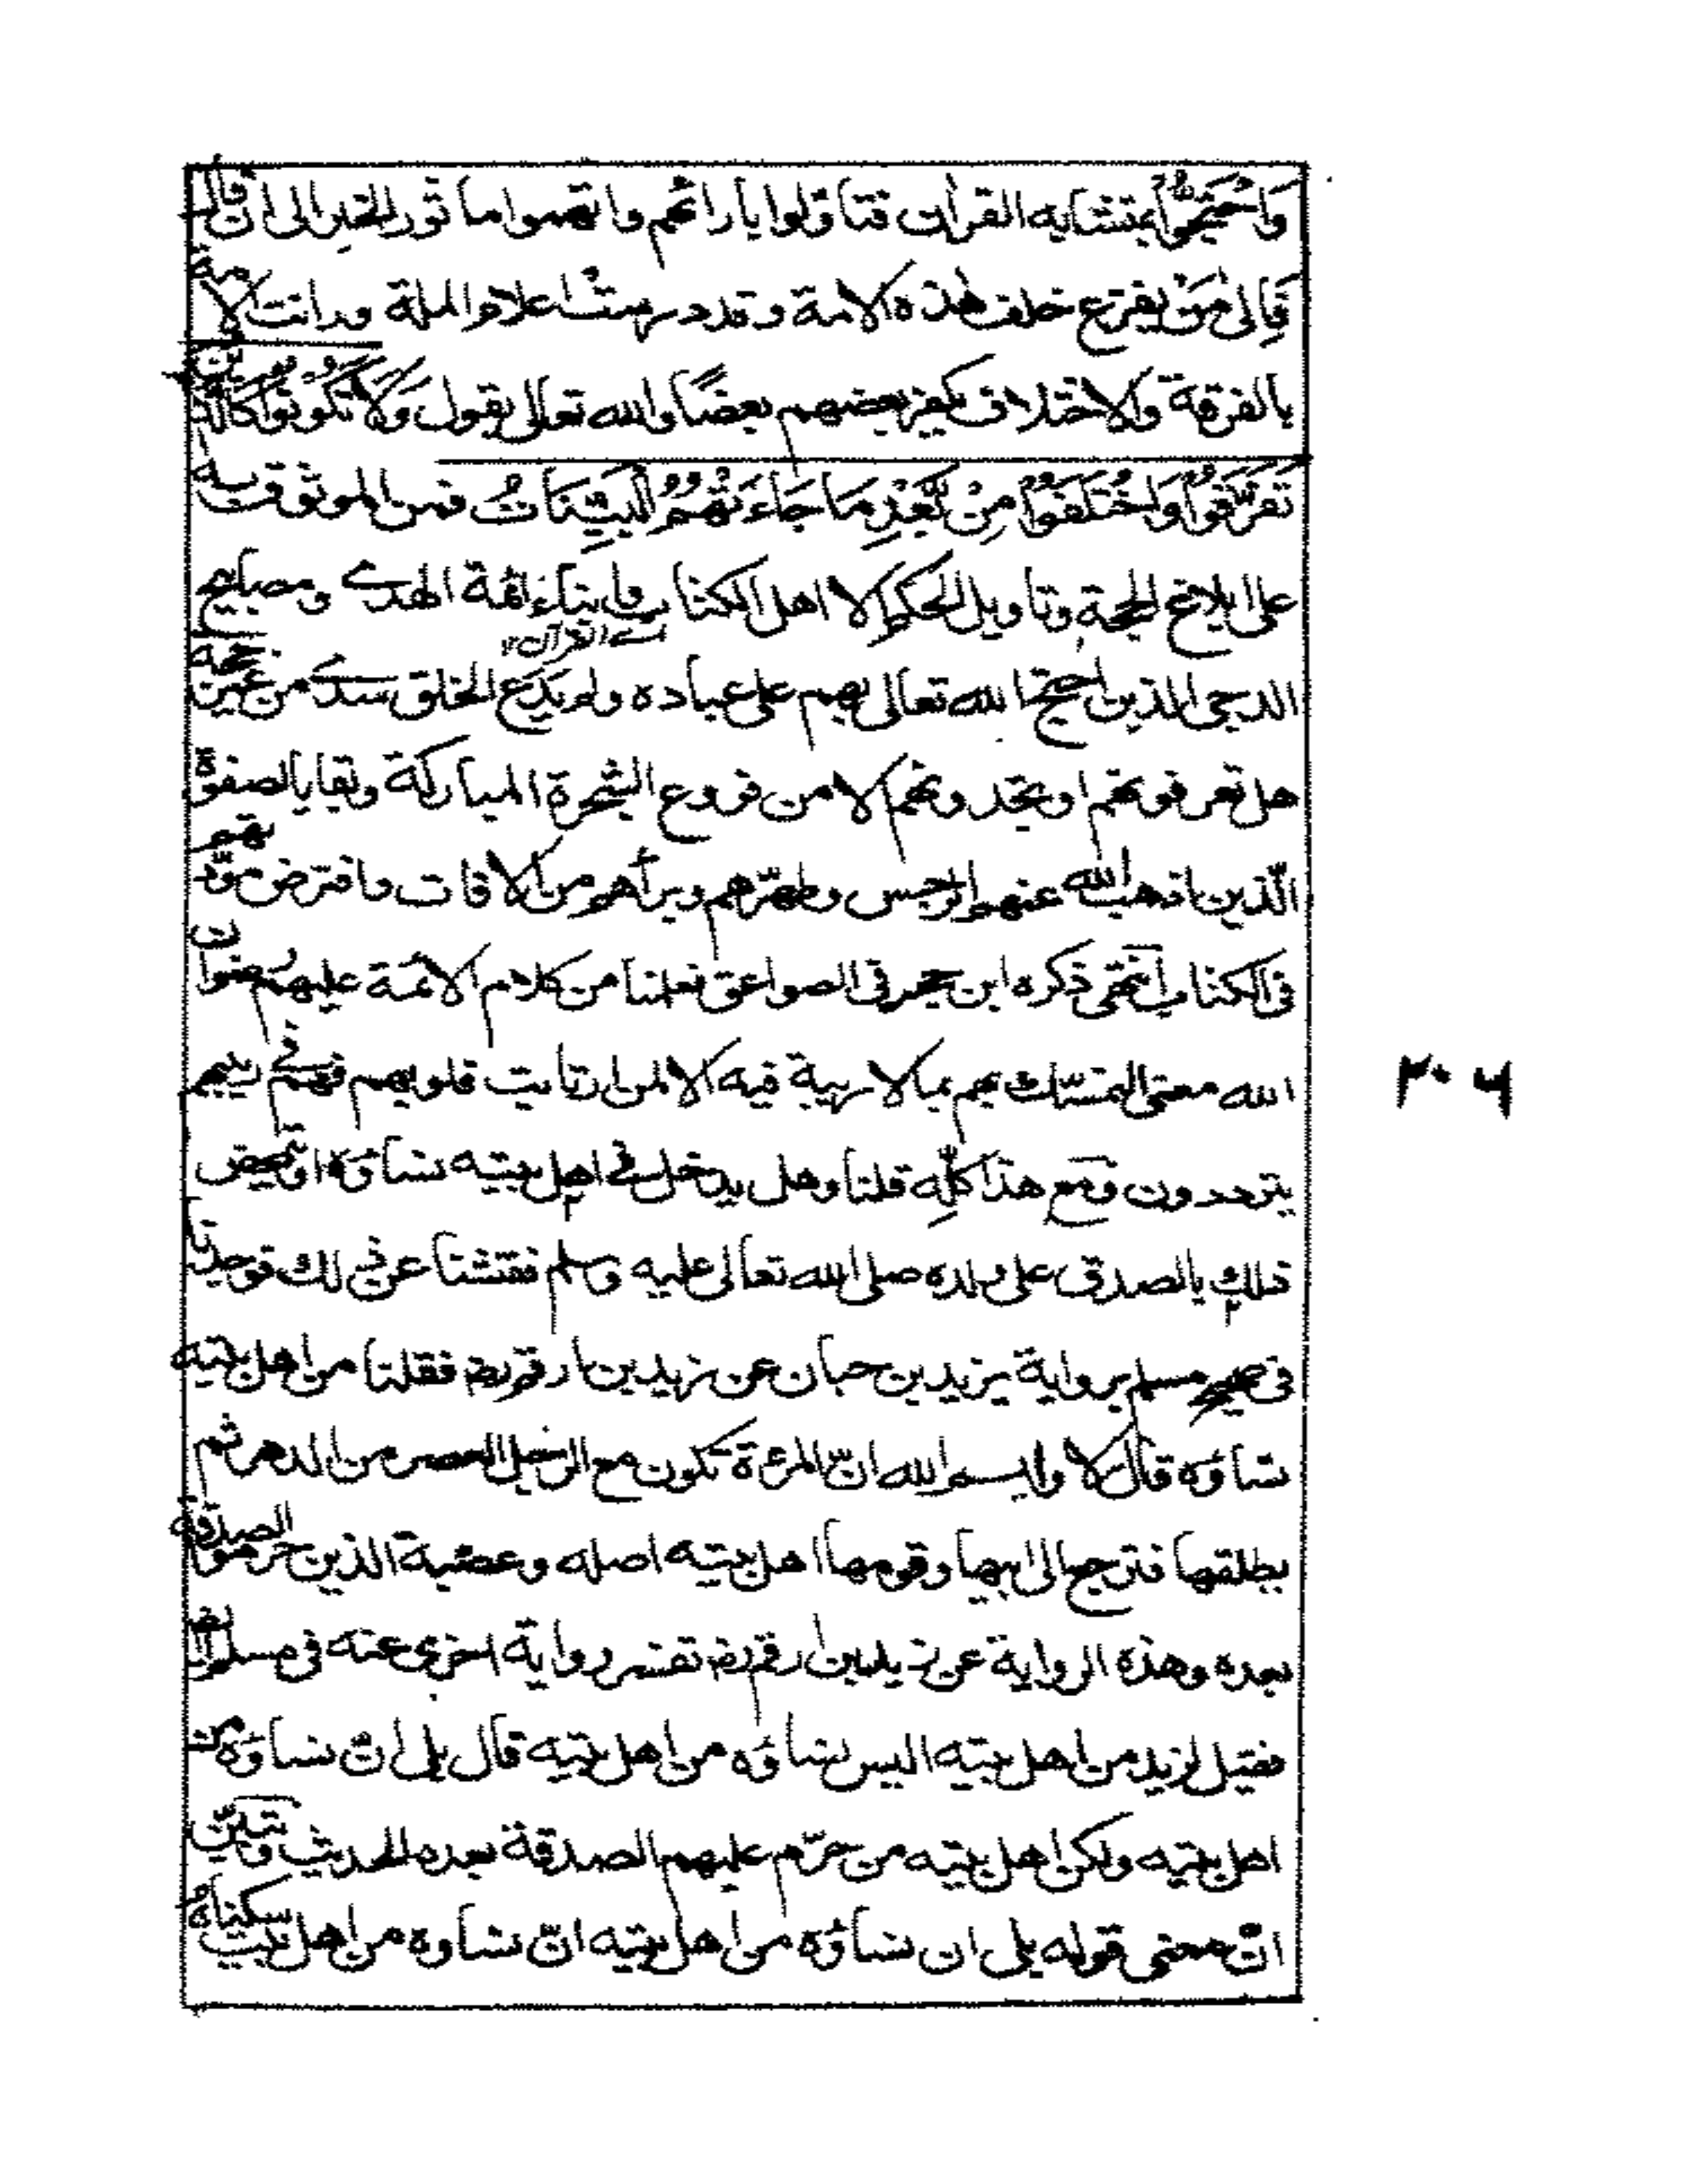 وَاحْتَجُّوا بمتشابه القرآن فتأولوا بآرائهم واتهموا ماثور الخبر الى ان قال
فَإِلى مَن يفزع خلف هذه الامة وقد درست اعلام الملة ودانت الامة
بالفرقة والاختلاف يكفر بعضهم بعضًا والله تعالى يقول وَلَا تَكُونُوا كَالَّذِينَ
تَفَرَّقُوا وَاخْتَلَفُوا مِنْ بَعْدِ مَا جَاءَتْهُمُ الْبَيِّنَاتُ فمن الموثوق به
على ابلاغ الحجة وتاويل الحكم الا اهل الكتاب وابناء ائمة الهدى ومصابيح
اے القرآن ۱۲
الدجى الذين احتج الله تعالى بهم على عباده ولم يدع الخلق سدى من غير حجة
هل تعرفونهم او تجدونهم الا من فروع الشجرة المباركة وبقايا الصفوة
الّذين اذهب الله عنهم الرجس وطهّرهم وبرأهم من الافات وافترض مودّتهم
فى الكتاب انتهى ذكره ابن حجر فى الصواعق فعلمنا من كلام الائمة عليهم رضوان
الله معنى التمسّك بهم بما لا ريبة فيه الا لمن ارتابت قلوبهم فهم في ريبهم
يترددون فمع هذا كلِّه قلنا وهل يدخل في اهل بيته نساؤه او تمحض
ذلك بالصدق على ولده صلى الله تعالى عليه وسلم ففتشنا عن ذلك فوجدنا
فى صحيح مسلم برواية يزيد بن حبان عن زيد بن ارقم رضـ فقلنا من اهل بيته
نساؤه قال لا وايم الله انّ المرءة تكون مع الرجل العصر من الدهر ثم
يطلقها فترجع الى ابيها وقومها اهل بيته اصله وعصبة الذين حرموا الصدقة
بعده وهذه الرواية عن زيد بن ارقم رضـ تفسر رواية اخرى عنه فى مسلم ايضا
فقيل لزيد من اهل بيته اليس نساؤه من اهل بيته قال بلى انّ نساؤه من
اهل بيته ولكن اهل بيته من حرّم عليهم الصدقة بعده الحديث وتبيّن
انّ معنى قوله بلى ان نساؤه من اهل بيته انّ نساوه من اهل بيت سكناه
۲۰۶